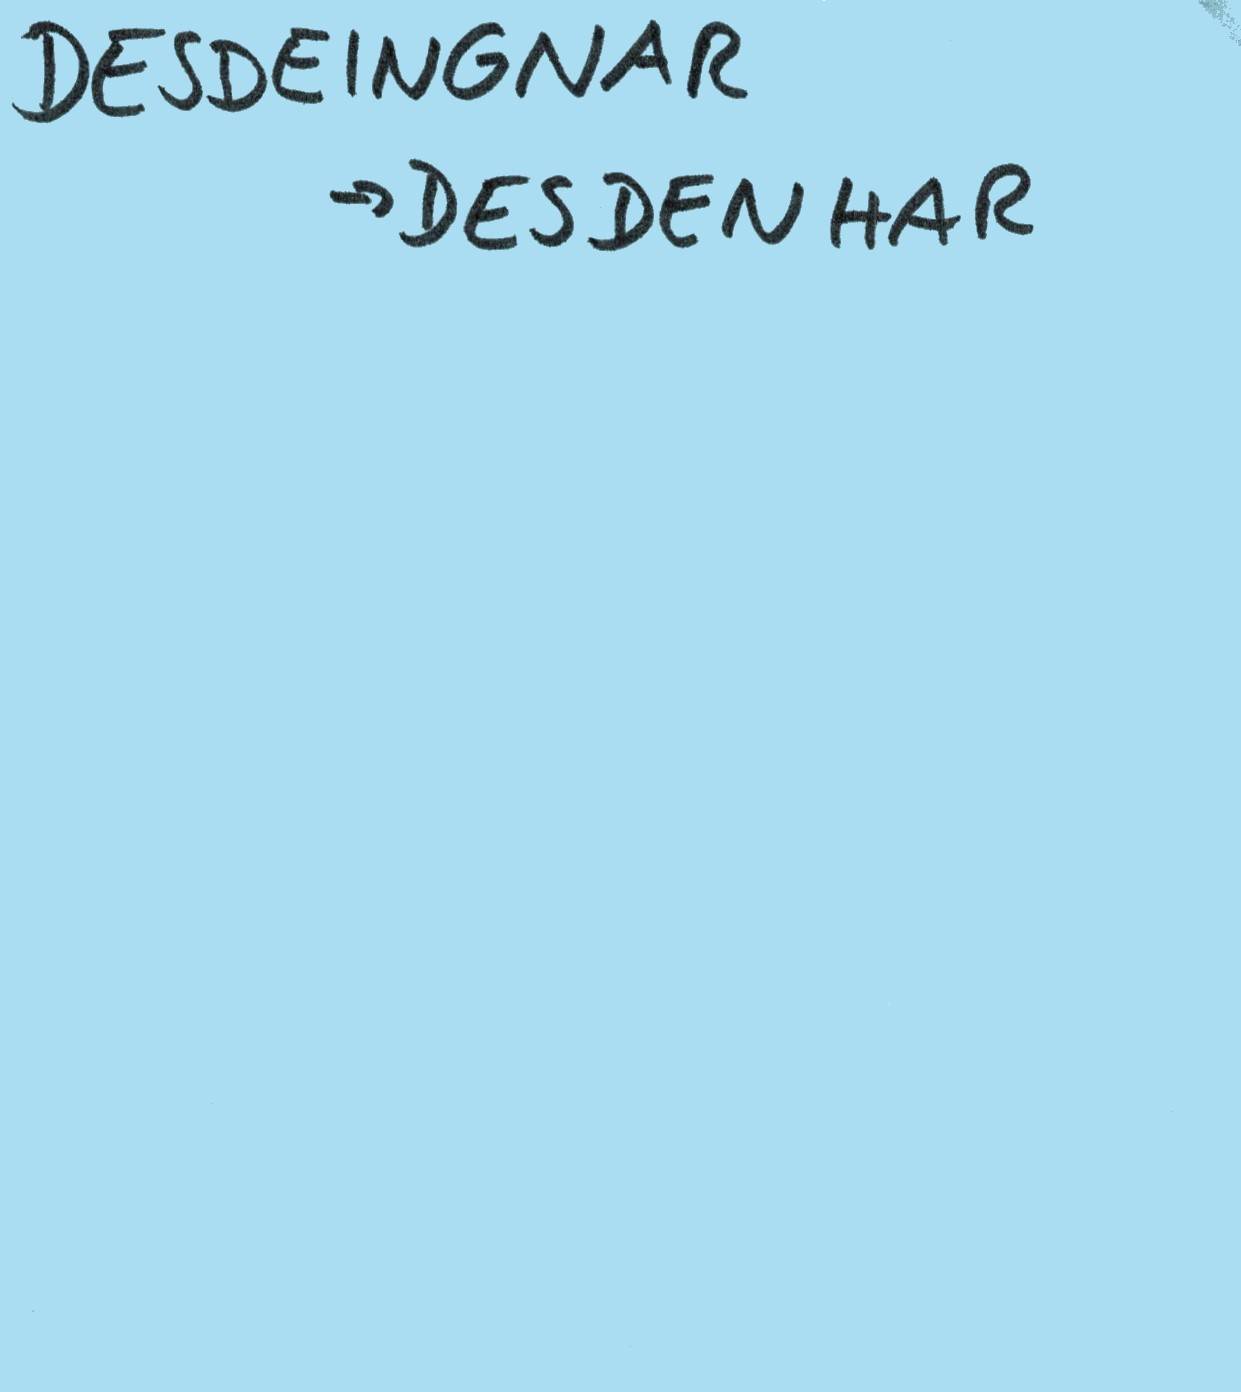 DESDEINGNAR
→DESDENHAR